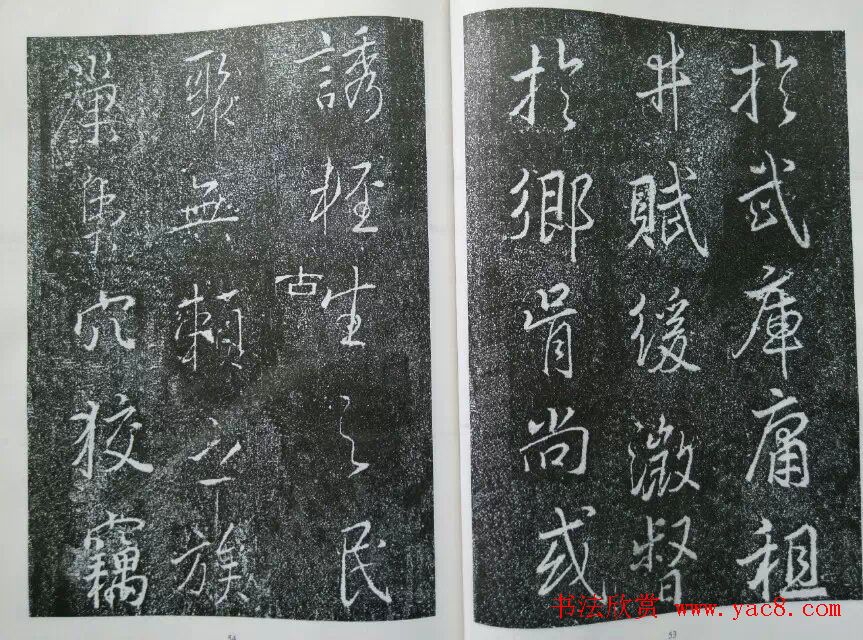 於武庫庸租
井賦緩激督
於鄉胥尚或
誘輕生之民
古
聚無賴之族
梟穴狡竊
54
53
书法欣赏 www.yac8.com